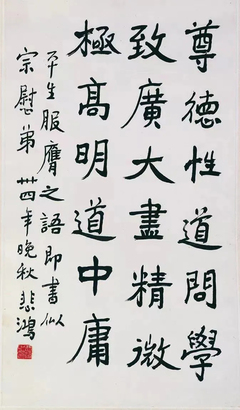 尊德性道問學
致廣大盡精微
極高明道中庸
平生服膺之語即書似
宗慰弟 卅四年晚秋 悲鴻